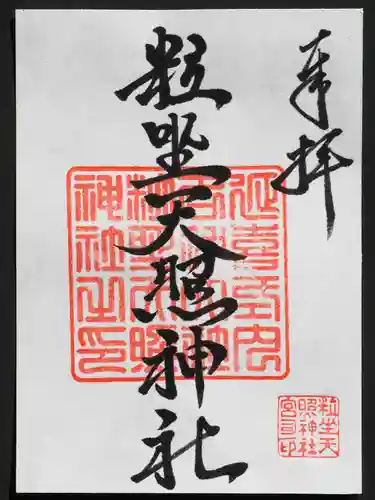 奉拝
粒坐天照神社
延喜式内
粒坐天照
神社之印
粒坐天
照神社
宮司印